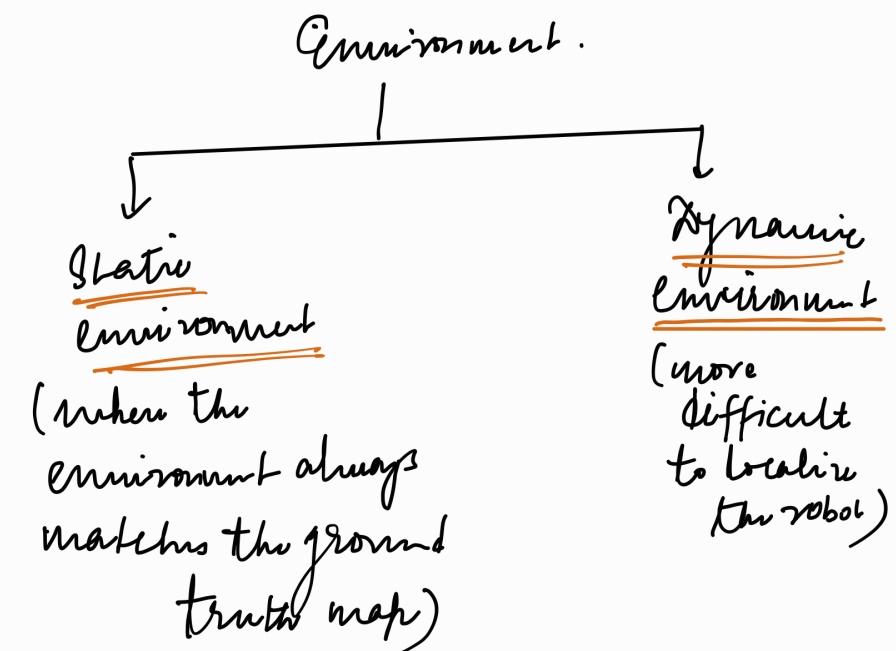 Environment.
Static
environment
(when the
environment always
matches the ground
truth map)
Dynamic
environment
(more
difficult
to localize
the robot)